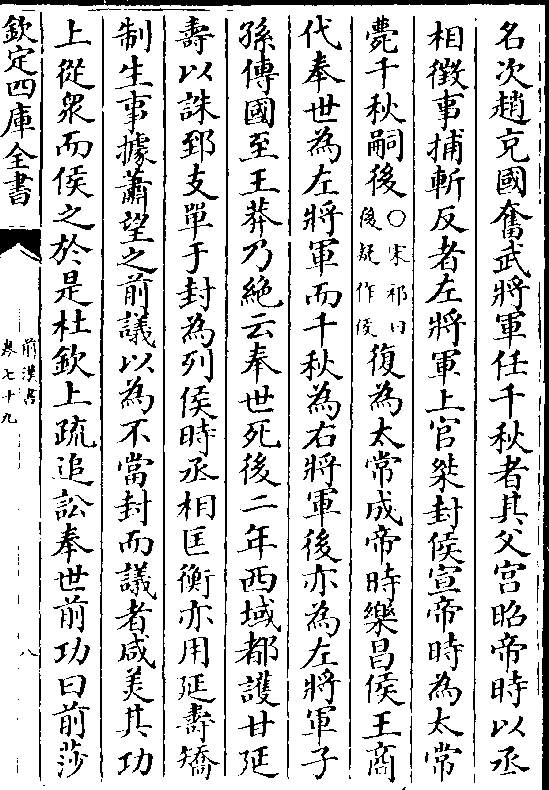 名次趙充國奮武將軍任千秋者其父宫昭帝時以丞
相徵事捕斬反者左將軍上官桀封侯宣帝時為太常
薨千秋嗣後○宋祁曰後疑作侯復為太常成帝時樂昌侯王商
代奉世為左將軍而千秋為右將軍後亦為左將軍子
孫傳國至王莽乃絶云奉世死後二年西域都護甘延
壽以誅郅支單于封為列侯時丞相匡衡亦用延壽矯
制生事據蕭望之前議以為不當封而議者咸美其功
上從衆而侯之於是杜欽上疏追訟奉世前功曰前莎
欽定四庫全書
前漢書
卷七十九
八